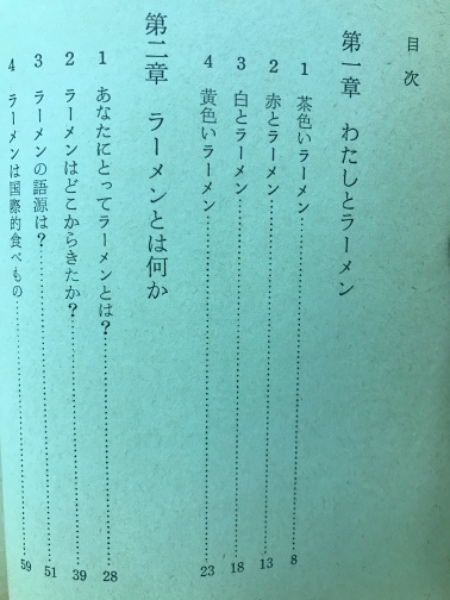 目次
第一章 わたしとラーメン
1 茶色いラーメン……………………………8
2 赤とラーメン……………………………13
3 白とラーメン……………………………18
4 黄色いラーメン……………………………23
第二章 ラーメンとは何か
1 あなたにとってラーメンとは?……………………………28
2 ラーメンはどこからきたか?……………………………39
3 ラーメンの語源は?……………………………51
4 ラーメンは国際的食べもの……………………………59